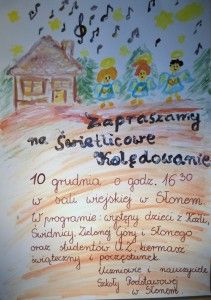 Zapraszamy
na Świetlicowe
Kolędowanie
10 grudnia o godz. 16 30
w sali wiejskiej w Słonem.
W programie: występy dzieci z Raculi,
Świdnicy, Zielonej Góry i Słonego
oraz studentów UZ, kiermasz
świąteczny i poczęstunek.
Uczniowie i nauczyciele
Szkoły Podstawowej
w Słonem